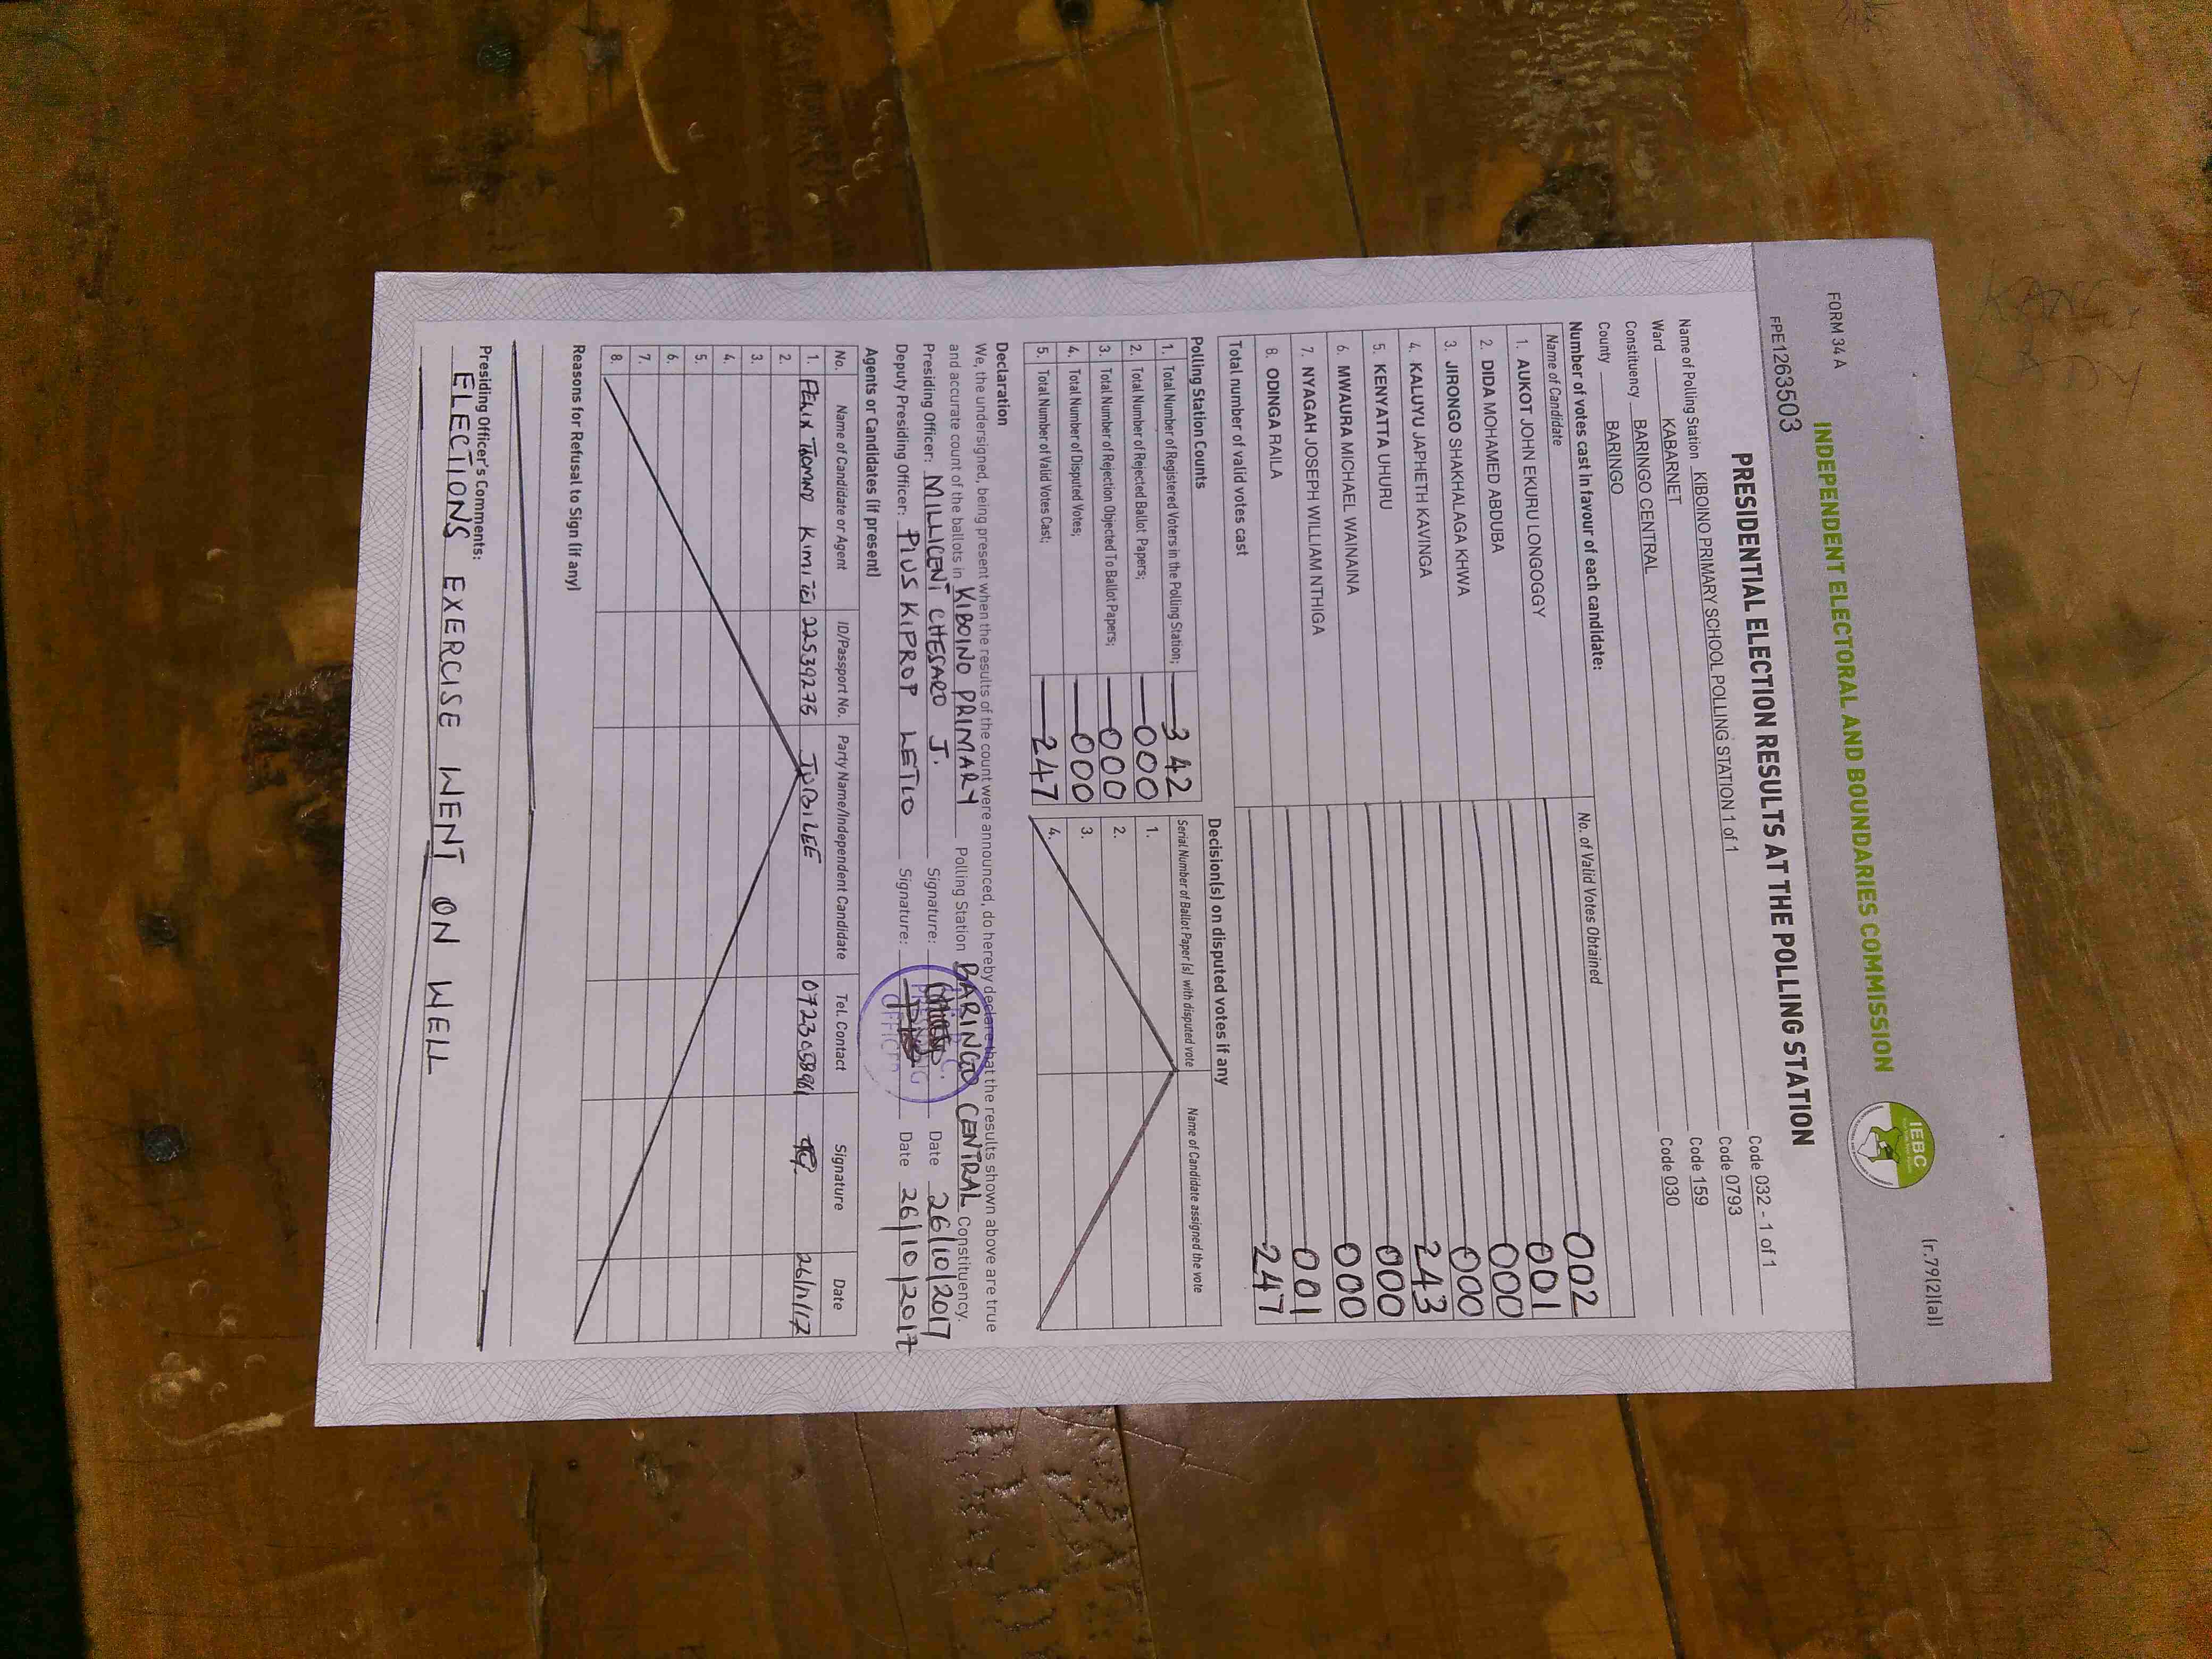 FORM 34 A
(r.79(2)(a))
INDEPENDENT ELECTORAL AND BOUNDARIES COMMISSION
IEBC
FPE1263503
PRESIDENTIAL ELECTION RESULTS AT THE POLLING STATION
Name of Polling Station KIBOINO PRIMARY SCHOOL POLLING STATION 1 of 1 Code 032 - 1 of 1
Ward KABARNET Code 0793
Constituency BARINGO CENTRAL Code 159
County BARINGO Code 030
Number of votes cast in favour of each candidate:
Name of Candidate No. of Valid Votes Obtained
1. AUKOT JOHN EKURU LONGOGGY 002
2. DIDA MOHAMED ABDUBA 001
3. JIRONGO SHAKHALAGA KHWA 000
4. KALUYU JAPHETH KAVINGA 000
5. KENYATTA UHURU 243
6. MWAURA MICHAEL WAINAINA 000
7. NYAGAH JOSEPH WILLIAM NTHIGA 000
8. ODINGA RAILA 001
Total number of valid votes cast 247
Polling Station Counts
1. Total Number of Registered Voters in the Polling Station; 342
2. Total Number of Rejected Ballot Papers; 000
3. Total Number of Rejection Objected To Ballot Papers; 000
4. Total Number of Disputed Votes; 000
5. Total Number of Valid Votes Cast; 247
Decision(s) on disputed votes if any
Serial Number of Ballot Paper (s) with disputed vote Name of Candidate assigned the vote
1.
2.
3.
4.
Declaration
We, the undersigned, being present when the results of the count were announced, do hereby declare that the results shown above are true
and accurate count of the ballots in KIBOINO PRIMARY Polling Station BARINGO CENTRAL Constituency.
Presiding Officer: MILLICENT CHESARO J. Signature: Date 26/10/2017
Deputy Presiding Officer: PIUS KIPROP LETIO Signature: Date 26/10/2017
Agents or Candidates (if present)
No. Name of Candidate or Agent ID/Passport No. Party Name/Independent Candidate Tel. Contact Signature Date
1. FELIX KIMITEI 22539276 JUBILEE
2.
3.
4.
5.
6.
7.
8.
Reasons for Refusal to Sign (if any)
Presiding Officer's Comments:
ELECTIONS EXERCISE WENT ON WELL